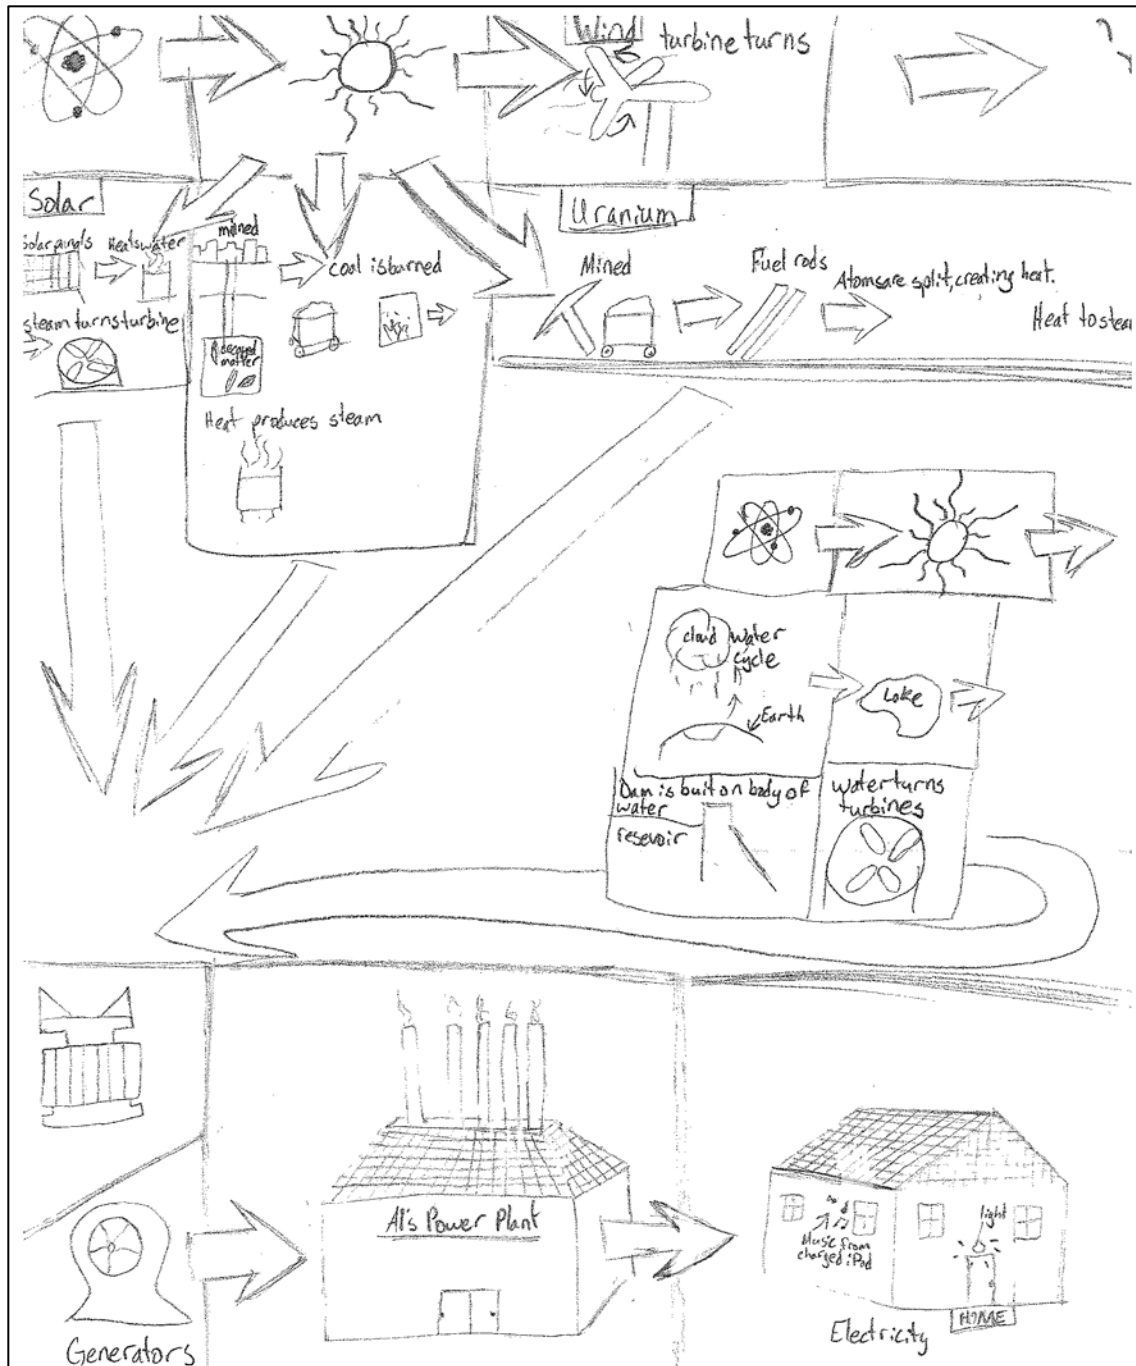 Wind
turbine turns
Solar
Solar painals
Heats water
steam turns turbine
mined
coal is burned
decayed
matter
Heat produces steam
Uranium
Mined
Fuel rods
Atoms are split, creating heat.
Heat to steam
cloud
water
cycle
Earth
Lake
Dam is buit on body of
water
resevoir
water turns
turbines
Generators
Al's Power Plant
Music from
charged iPod
light
HOME
Electricity